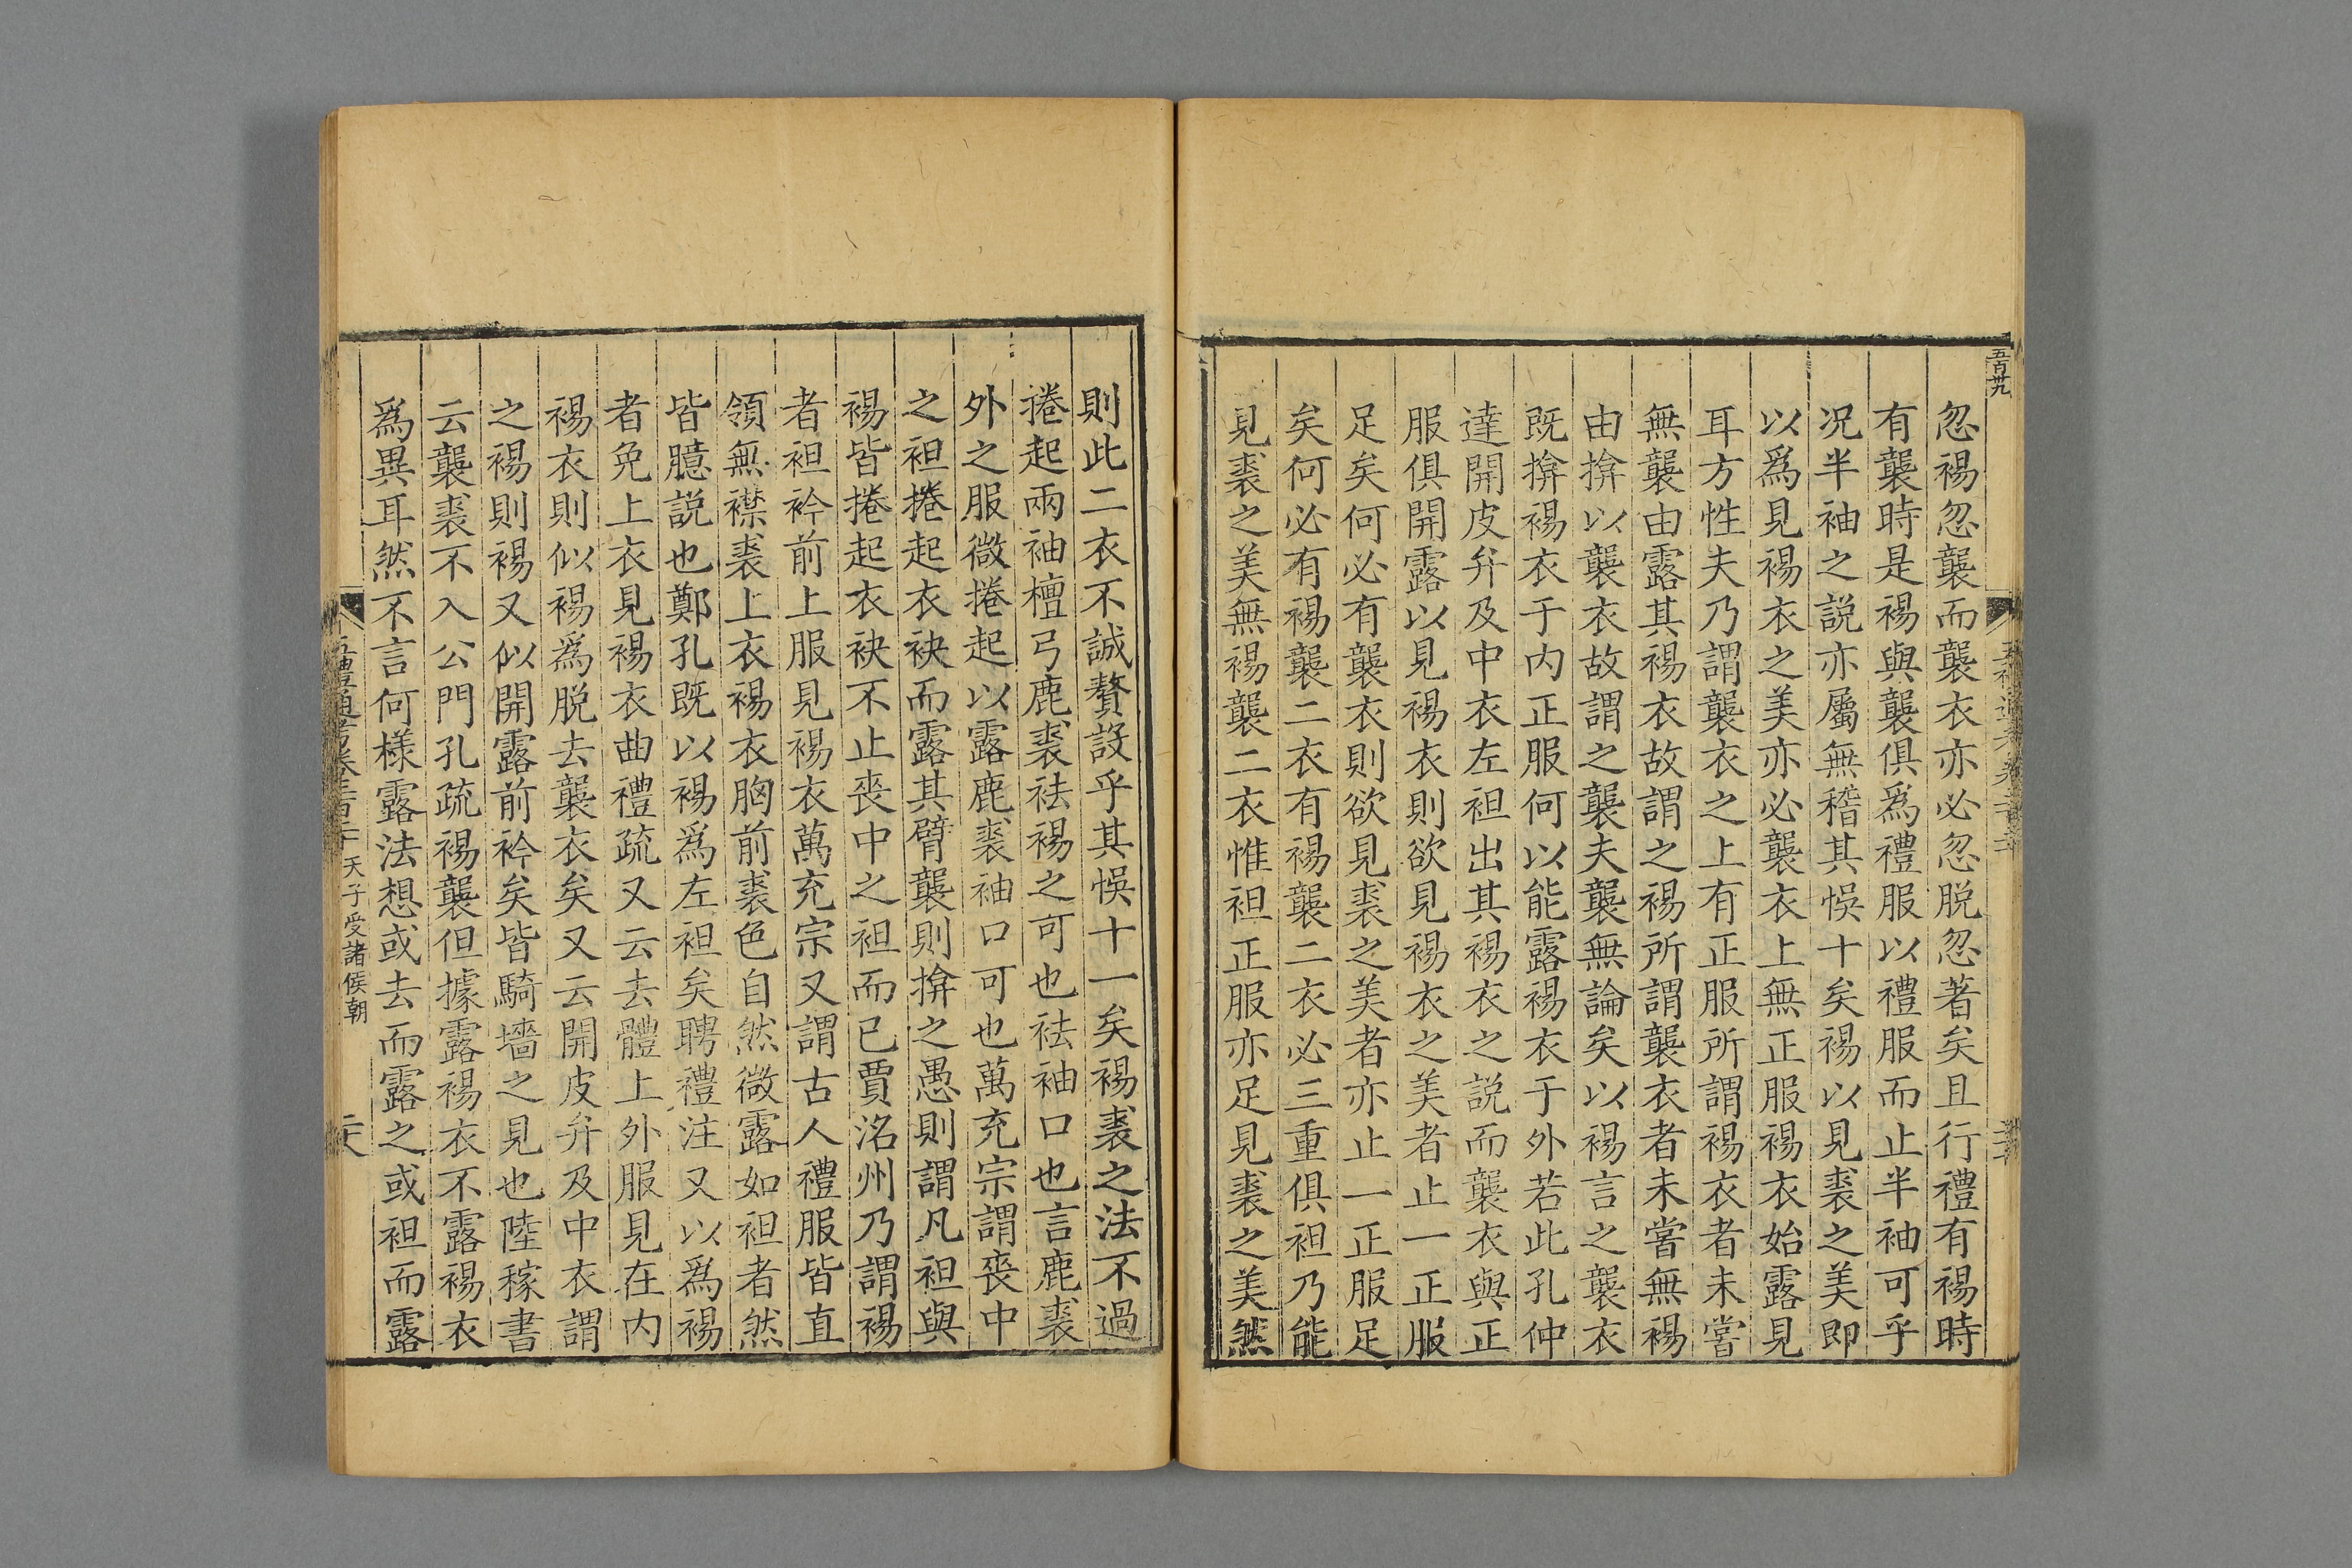 五百卅九
忽裼忽襲而襲衣亦必忽脱忽著矣且行禮有裼時
有襲時是裼與襲俱爲禮服以禮服而止半袖可乎
况半袖之説亦屬無稽其悞十矣裼以見裘之美即
以爲見裼衣之美亦必襲衣上無正服裼衣始露見
耳方性夫乃謂襲衣之上有正服所謂裼衣者未嘗
無襲由露其裼衣故謂之裼所謂襲衣者未嘗無裼
由揜以襲衣故謂之襲夫襲無論矣以裼言之襲衣
既揜裼衣于内正服何以能露裼衣于外若此孔仲
達開皮弁及中衣左袒出其裼衣之説而襲衣與正
服俱開露以見裼衣則欲見裼衣之美者止一正服
足矣何必有襲衣則欲見裘之美者亦止一正服足
矣何必有裼襲二衣有裼襲二衣必三重俱袒乃能
見裘之美無裼襲二衣惟袒正服亦足見裘之美然
則此二衣不誠贅設乎其悞十一矣裼裘之法不過
捲起兩袖檀弓鹿裘袪裼之可也袪袖口也言鹿裘
外之服微捲起以露鹿裘袖口可也萬充宗謂喪中
之袒捲起衣袂而露其臂襲則揜之愚則謂凡袒與
裼皆捲起衣袂不止喪中之袒而已賈洺州乃謂裼
者袒衿前上服見裼衣萬充宗又謂古人禮服皆直
領無襟裘上衣裼衣胸前裘色自然微露如袒者然
皆臆説也鄭孔既以裼爲左袒矣聘禮注又以爲裼
者免上衣見裼衣曲禮疏又云去體上外服見在内
裼衣則似裼爲脱去襲衣矣又云開皮弁及中衣謂
之裼則裼又似開露前衿矣皆騎墻之見也陸稼書
云襲裘不入公門孔疏裼襲但據露裼衣不露裼衣
爲異耳然不言何様露法想或去而露之或袒而露
五禮通考卷二百二十 天子受諸侯朝